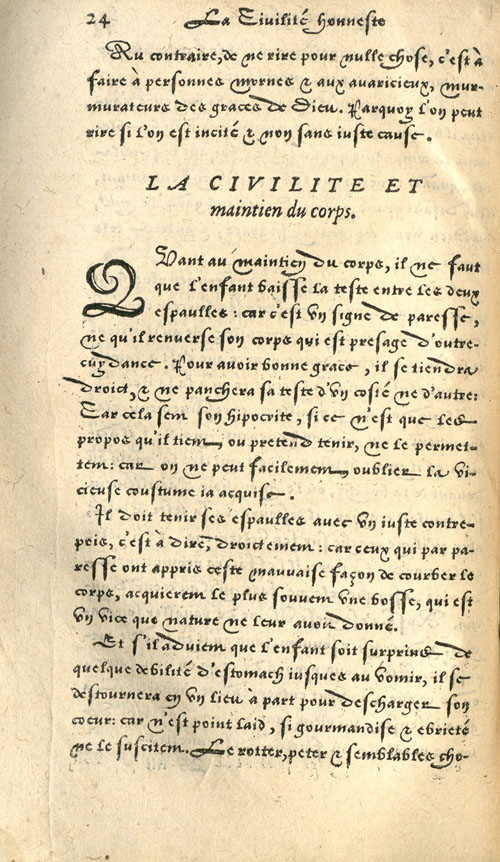 24 La Civilité honneste
Au contraire, de ne rire pour nulle chose, c'est à
faire à personnes mornes & aux avaricieux, mur-
murateurs des graces de Dieu. Parquoy l'on peut
rire si l'on est incité & non sans iuste cause.
LA CIVILITE ET
maintien du corps.
QVant au maintien du corps, il ne faut
que l'enfant baisse la teste entre les deux
espaulles : car c'est vn signe de paresse,
ne qu'il renverse son corps qui est presage d'outre-
cuydance. Pour avoir bonne grace, il se tiendra
droict, & ne panchera sa teste d'vn costé ne d'autre:
Car cela sent son hipocrite, si ce n'est que les
propos qu'il tient, ou pretend tenir, ne le permet-
tent: car on ne peut facilement oublier la vi-
cieuse coustume ia acquise.
Il doit tenir ses espaulles avec vn iuste contre-
pois, c'est à dire, droictement : car ceux qui par pa-
resse ont appris ceste mauvaise façon de courber le
corps, acquierent le plus souvent vne bosse, qui est
vn vice que nature ne leur avoit donné.
Et s'il advient que l'enfant soit surprins de
quelque debilité d'estomach iusques au vomir, il se
destournera en vn lieu à part pour descharger son
coeur: car n'est point laid, si gourmandise & ebrieté
ne le suscitent. Le rotter, peter & semblables cho-